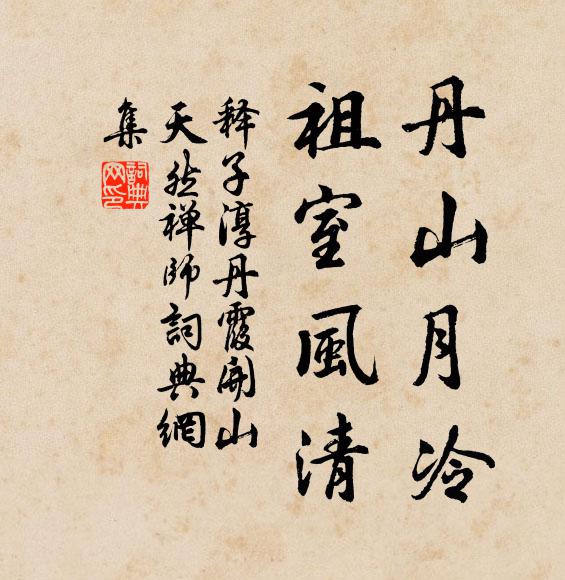 丹山月冷
祖室風清
释子淳丹霞開山
天然禅師詞典網
集
詞典
网印